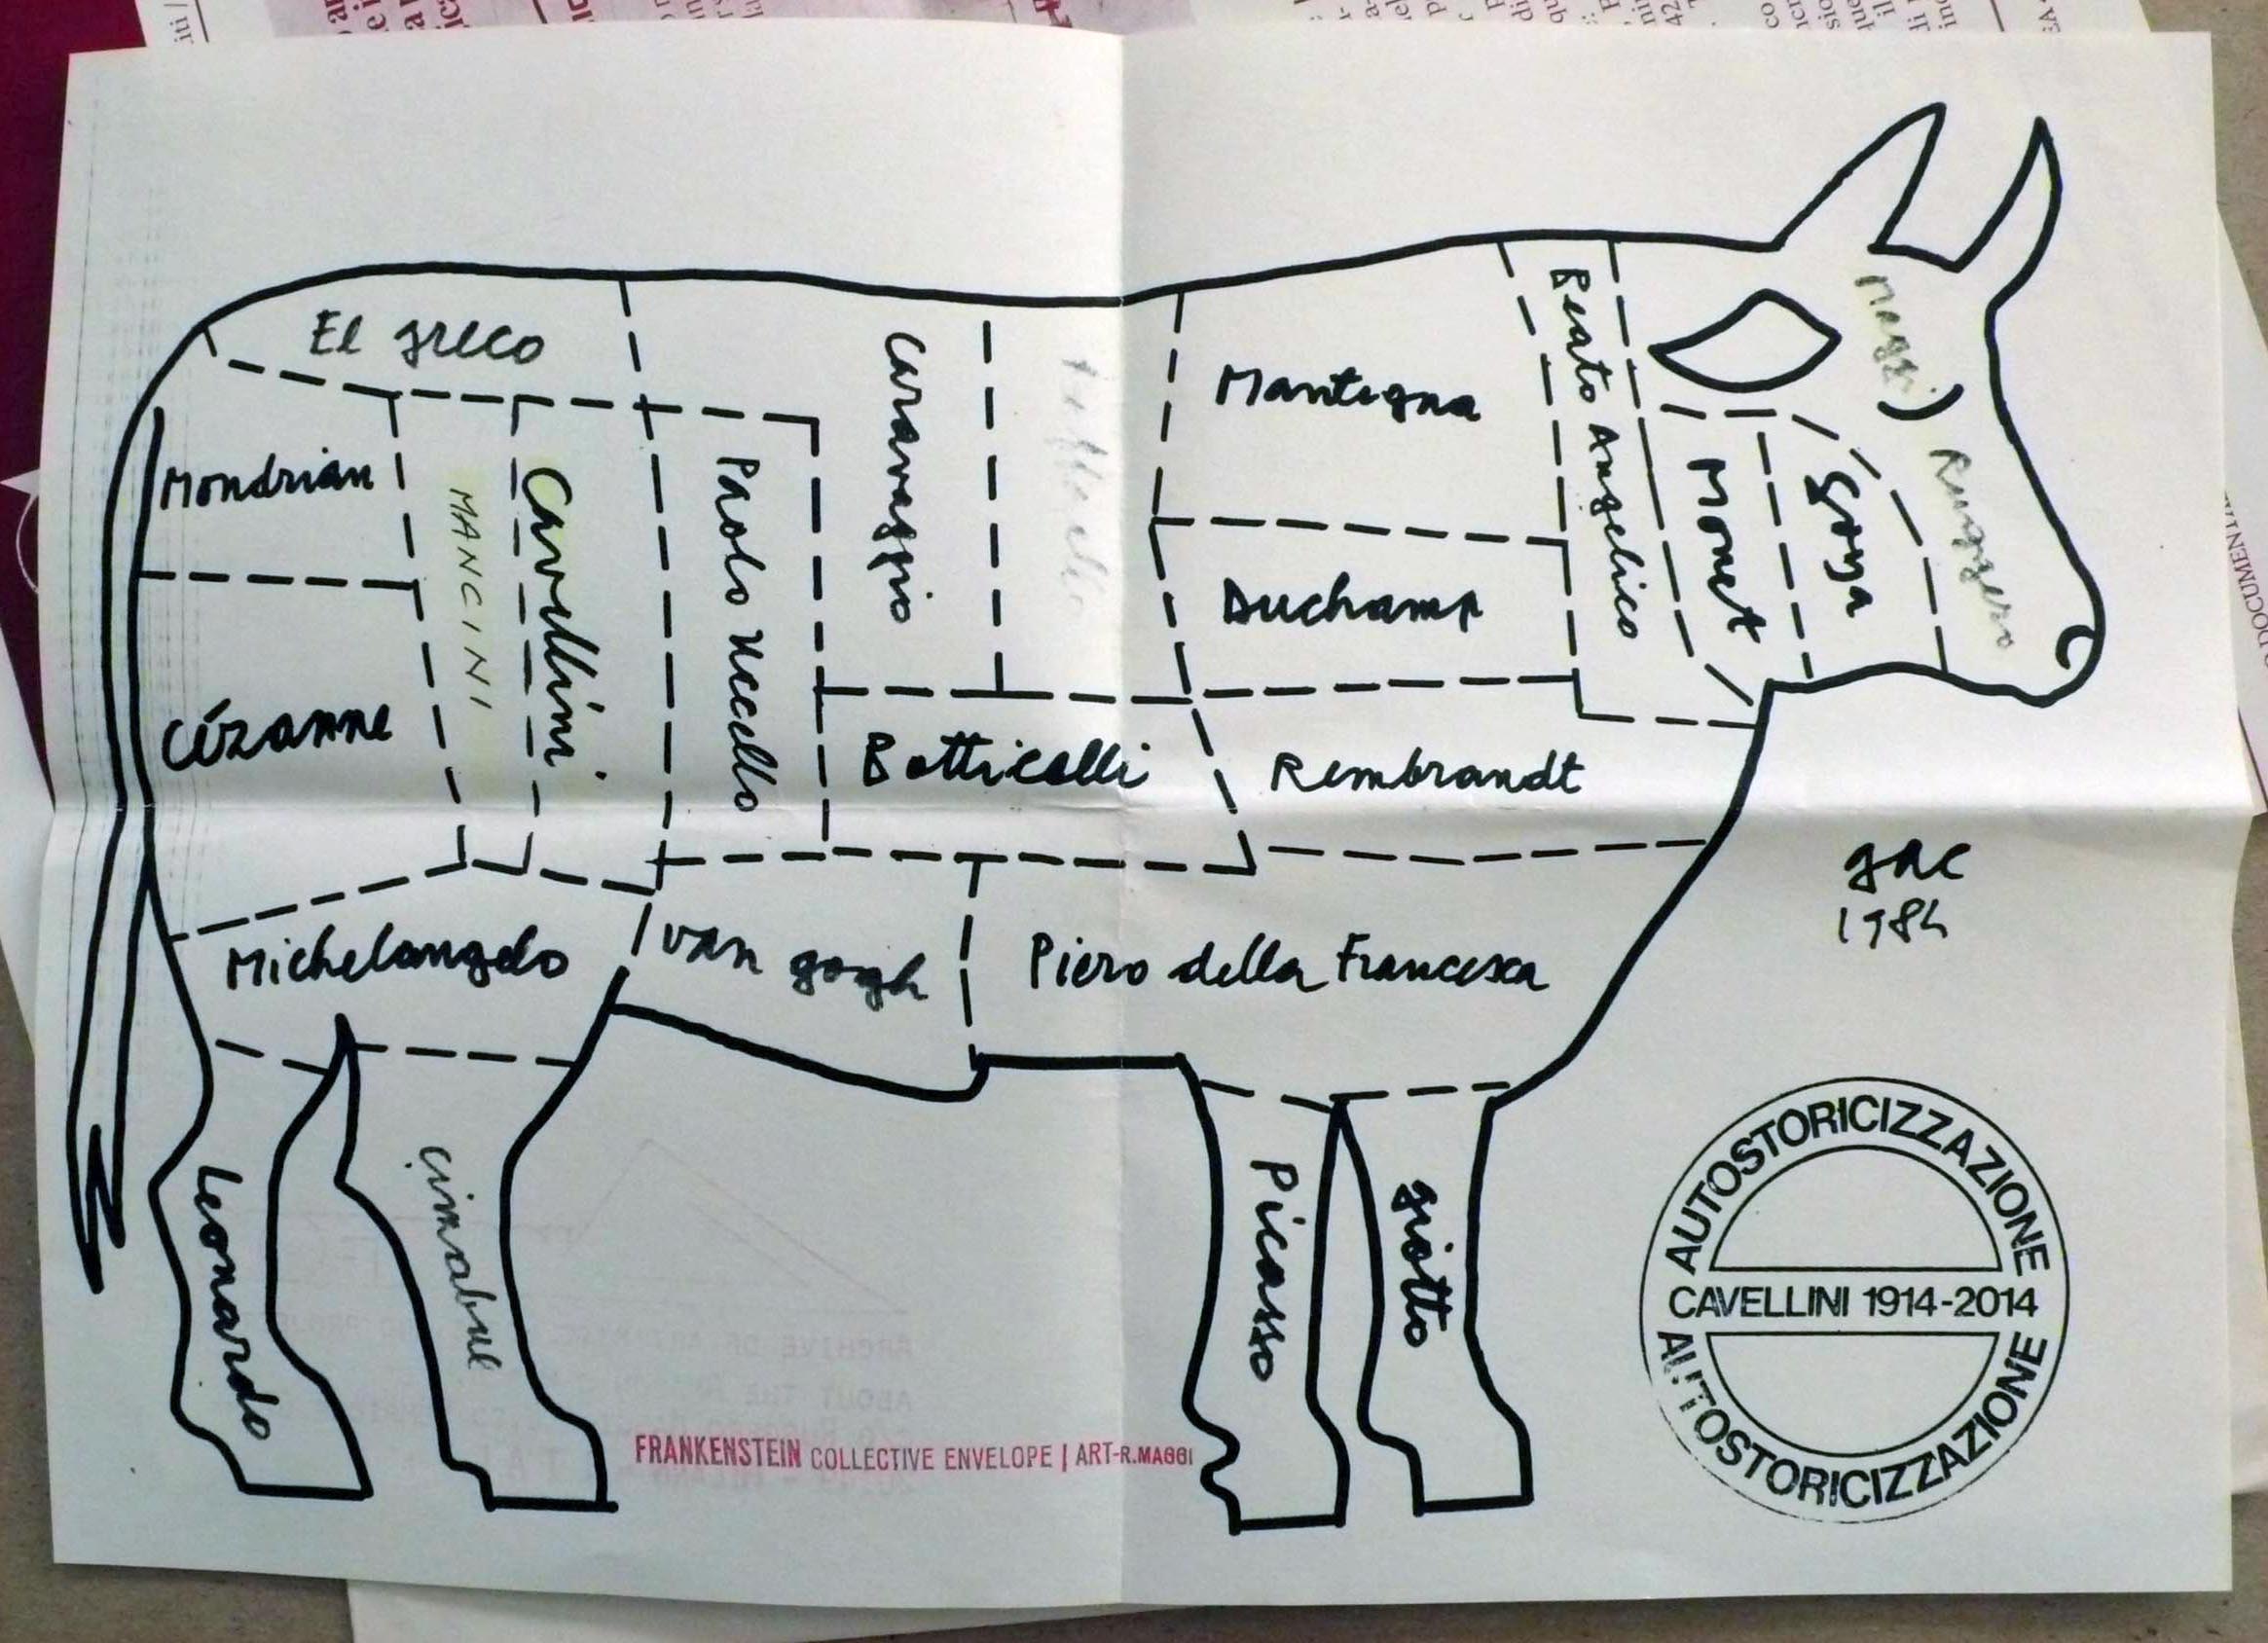 El greco
Mondrian
MANCINI
Cavellini
Cézanne
Paolo Uccello
Caravaggio
Mantegna
Duchamp
Beato Angelico
Monet
goya
Maggi
Ruggero
Botticelli
Rembrandt
Michelangelo
van gogh
Piero della Francesca
gac
1984
Leonardo
cimabue
Picasso
giotto
AUTOSTORICIZZAZIONE
CAVELLINI 1914-2014
AUTOSTORICIZZAZIONE
FRANKENSTEIN COLLECTIVE ENVELOPE | ART-R.MAGGI